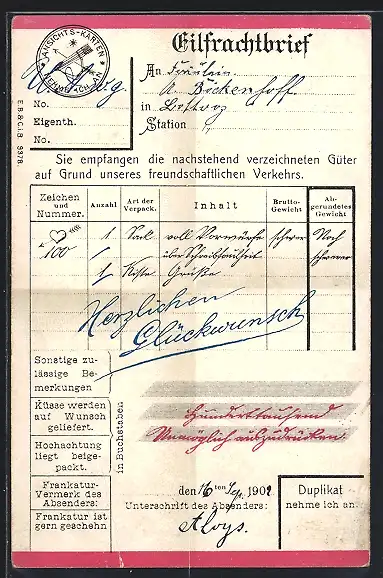 ANSICHTS-KARTEN
Eilfrachtbrief
An Fräulein
A. Bickenhoff
in
Station "
No.
Eigenth.
No.
E.B.&C.i.B. 3378.
Sie empfangen die nachstehend verzeichneten Güter
auf Grund unseres freundschaftlichen Verkehrs.
Zeichen und Nummer. Anzahl Art der Verpack. Inhalt Brutto-Gewicht Abgerundetes Gewicht
1 Sack voll Vorwürfe schwer Noch
100 / über Schreibfaulheit schwerer
1 Kiste Grüße
Herzlichen
Glückwunsch
Sonstige zu-
lässige Be-
merkungen
Küsse werden
auf Wunsch
geliefert.
Hochachtung
liegt beige-
packt.
in Buchstaben
Hunderttausend
Unmöglich auszudrücken.
Frankatur-
Vermerk des
Absenders:
Frankatur ist
gern geschehn
den 16ten 190
Unterschrift des Absenders:
Aloys.
Duplikat
nehme ich an.